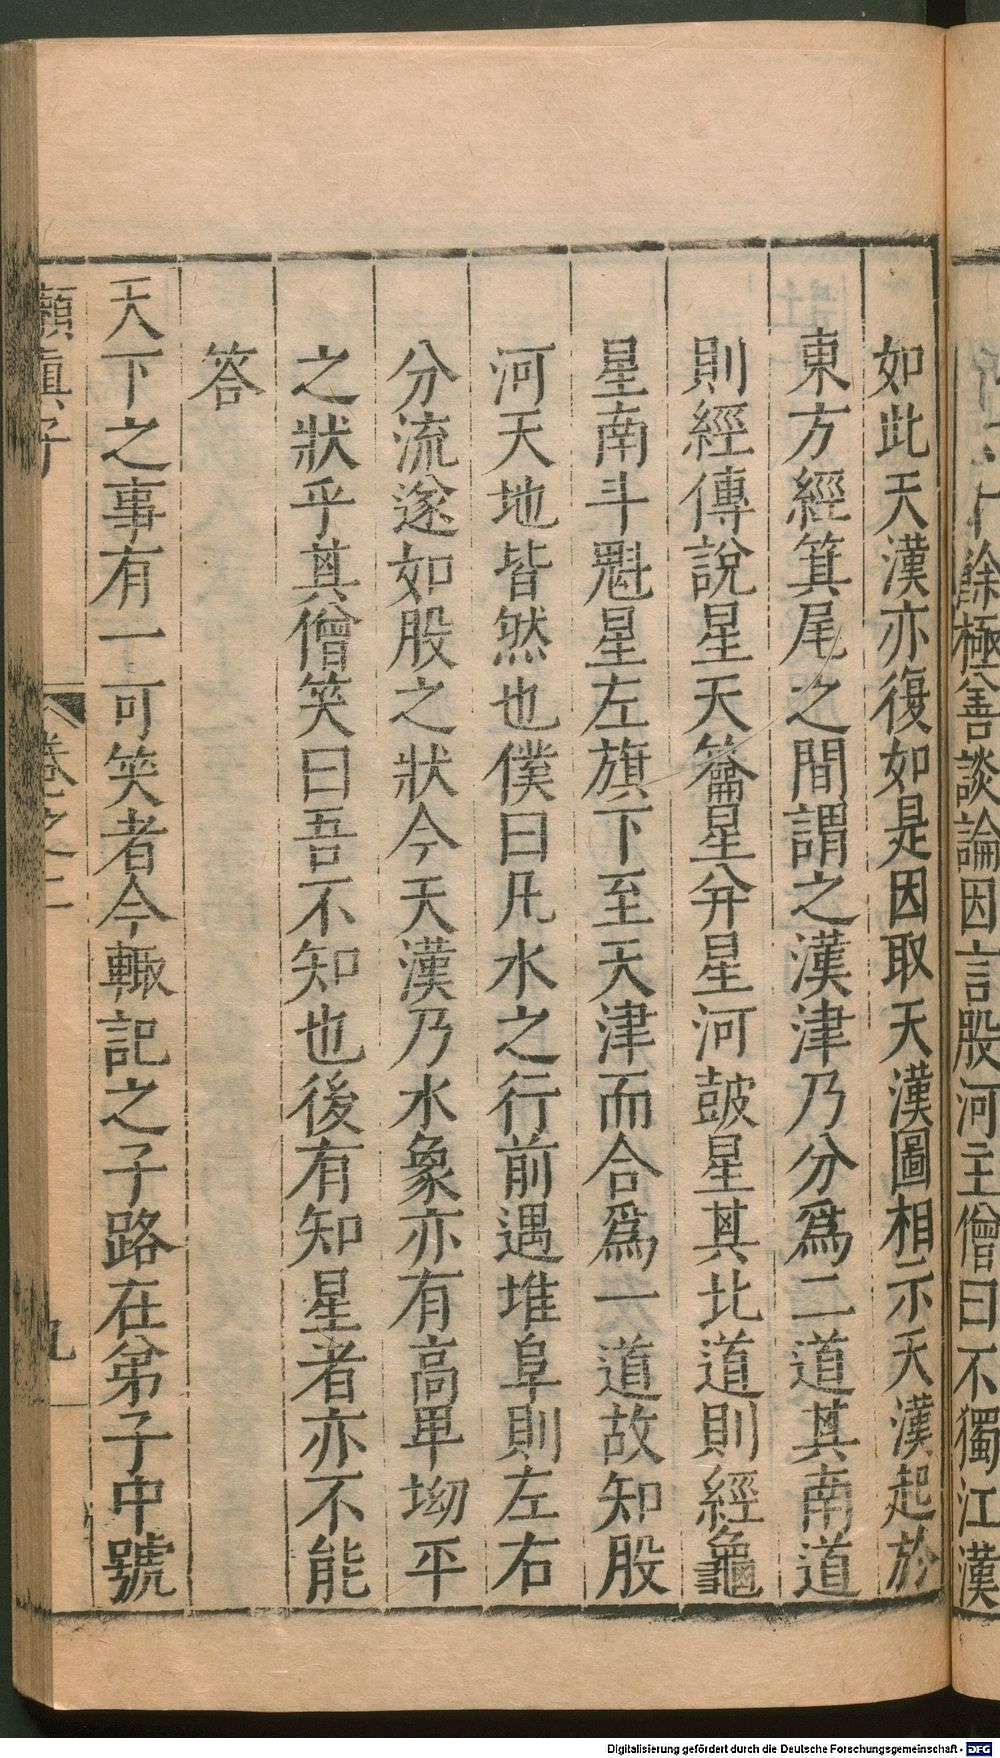 餘極善談論因言股河主僧曰不獨江漢
如此天漢亦復如是因取天漢圖相示天漢起於
東方經箕尾之間謂之漢津乃分爲二道其南道
則經傳說星天籥星弁星河鼓星其北道則經龜
星南斗魁星左旗下至天津而合爲一道故知股
河天地皆然也僕曰凡水之行前遇堆阜則左右
分流遂如股之狀今天漢乃水象亦有高卑坳平
之狀乎其僧笑曰吾不知也後有知星者亦不能
答
天下之事有一可笑者今輙記之子路在弟子中號
嬾眞子 卷之二 九
Digitalisierung gefördert durch die Deutsche Forschungsgemeinschaft - DFG